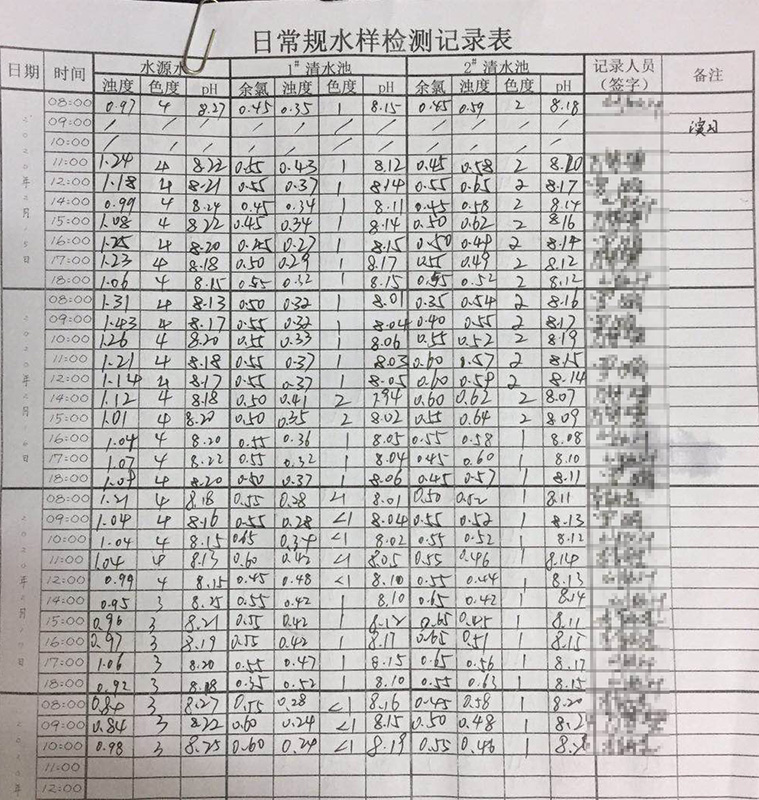 日常规水样检测记录表
日期 时间 水源水 1# 清水池 2# 清水池 记录人员(签字) 备注
浊度 色度 pH 余氯 浊度 色度 pH 余氯 浊度 色度 pH
08:00 0.97 4 8.27 0.45 0.35 1 8.15 0.45 0.59 2 8.18
09:00 / / / / / / / / / / / 演习
10:00 / / / / / / / / / / /
11:00 1.24 4 8.22 0.55 0.43 1 8.12 0.45 0.58 2 8.20
12:00 1.18 4 8.21 0.55 0.37 1 8.14 0.55 0.65 2 8.17
14:00 0.99 4 8.24 0.45 0.34 1 8.11 0.45 0.58 2 8.14
15:00 1.08 4 8.22 0.45 0.34 1 8.14 0.50 0.62 2 8.16
16:00 1.25 4 8.20 0.45 0.27 1 8.15 0.50 0.49 2 8.14
17:00 1.23 4 8.18 0.50 0.29 1 8.17 0.55 0.49 2 8.12
18:00 1.06 4 8.15 0.55 0.32 1 8.15 0.55 0.52 2 8.12
08:00 1.31 4 8.13 0.50 0.32 1 8.01 0.35 0.54 2 8.16
09:00 1.43 4 8.17 0.55 0.32 1 8.04 0.40 0.55 2 8.17
10:00 1.26 4 8.20 0.55 0.33 1 8.06 0.55 0.52 2 8.19
11:00 1.21 4 8.18 0.55 0.37 1 8.03 0.60 0.57 2 8.15
12:00 1.14 4 8.17 0.55 0.37 1 8.05 0.60 0.59 2 8.14
14:00 1.12 4 8.18 0.50 0.41 2 7.94 0.60 0.62 2 8.07
15:00 1.01 4 8.20 0.50 0.35 2 8.02 0.55 0.64 2 8.09
16:00 1.04 4 8.20 0.55 0.36 1 8.05 0.55 0.58 1 8.08
17:00 1.07 4 8.22 0.55 0.32 1 8.04 0.45 0.60 1 8.10
18:00 1.09 4 8.20 0.50 0.37 1 8.06 0.45 0.57 1 8.11
08:00 1.21 4 8.18 0.55 0.28 <1 8.01 0.50 0.52 1 8.11
09:00 1.04 4 8.16 0.55 0.28 <1 8.04 0.55 0.52 1 8.13
10:00 1.04 4 8.15 0.65 0.34 <1 8.02 0.55 0.52 1 8.12
11:00 1.04 4 8.13 0.60 0.42 <1 8.05 0.55 0.46 1 8.14
12:00 0.99 4 8.15 0.45 0.48 <1 8.10 0.55 0.44 1 8.13
14:00 0.95 3 8.25 0.55 0.42 1 8.10 0.65 0.42 1 8.14
15:00 0.96 3 8.21 0.55 0.42 1 8.12 0.65 0.45 1 8.11
16:00 0.97 3 8.19 0.55 0.42 1 8.17 0.65 0.51 1 8.15
17:00 1.06 3 8.20 0.55 0.47 1 8.15 0.65 0.56 1 8.17
18:00 0.92 3 8.18 0.35 0.52 1 8.10 0.55 0.63 1 8.15
08:00 0.84 3 8.27 0.55 0.28 <1 8.16 0.45 0.58 1 8.20
09:00 0.84 3 8.22 0.60 0.24 <1 8.15 0.50 0.48 1 8.24
10:00 0.98 3 8.25 0.60 0.24 <1 8.19 0.55 0.46 1
11:00
12:00